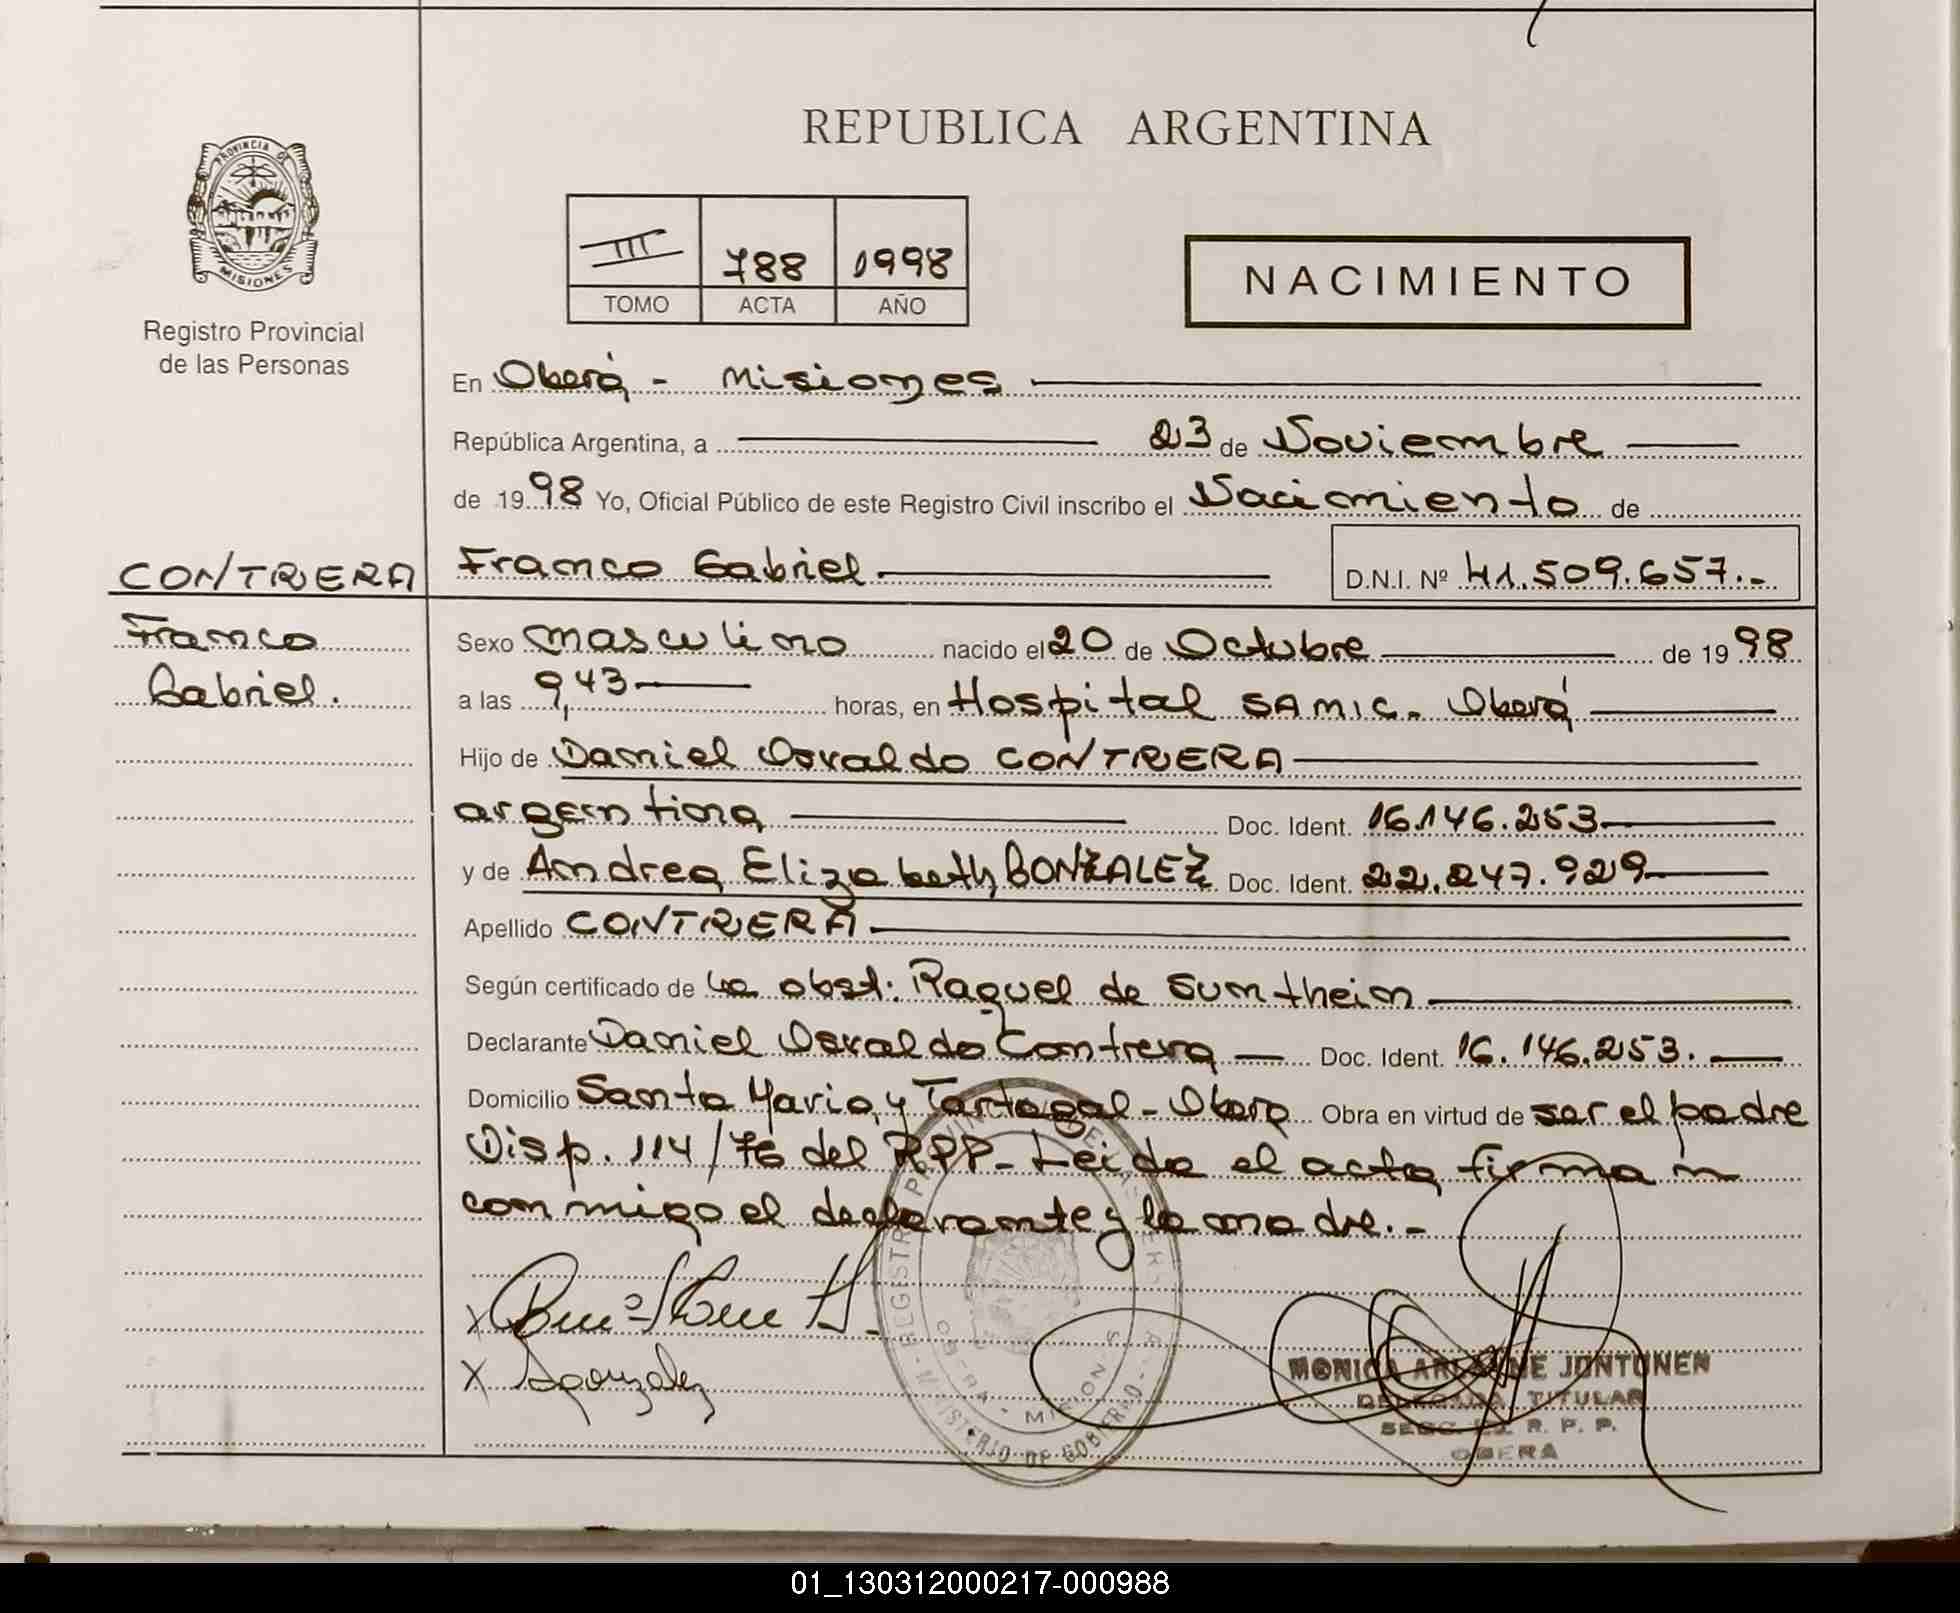 REPUBLICA ARGENTINA
PROVINCIA DE
MISIONES
Registro Provincial
de las Personas
III 788 1998
TOMO ACTA AÑO
NACIMIENTO
En Oberá - Misiones
República Argentina, a 23 de Noviembre
de 1998 Yo, Oficial Público de este Registro Civil inscribo el Nacimiento de
CONTRERA
Franco Gabriel D.N.I. Nº 41.509.657.-
Franco
Gabriel.
Sexo masculino nacido el 20 de Octubre de 1998
a las 9,43 horas, en Hospital SAMIC. Oberá
Hijo de Daniel Osvaldo CONTRERA
argentina Doc. Ident. 16.146.253
y de Andrea Elizabeth GONZALEZ Doc. Ident. 22.247.929
Apellido CONTRERA
Según certificado de La obst. Raquel de Sumtheim
Declarante Daniel Osvaldo Contrera Doc. Ident. 16.146.253.
Domicilio Santa María y Tartagal - Oberá Obra en virtud de ser el padre
Disp. 114/76 del RPP- Leida el acta firman
conmigo el declarante y la madre.-
X
X Agonzalez
MINISTERIO DE GOBIERNO
MONICA ARLENNE JONTUNEN
DELEGADA TITULAR
R. P. P.
OBERA
01_130312000217-000988